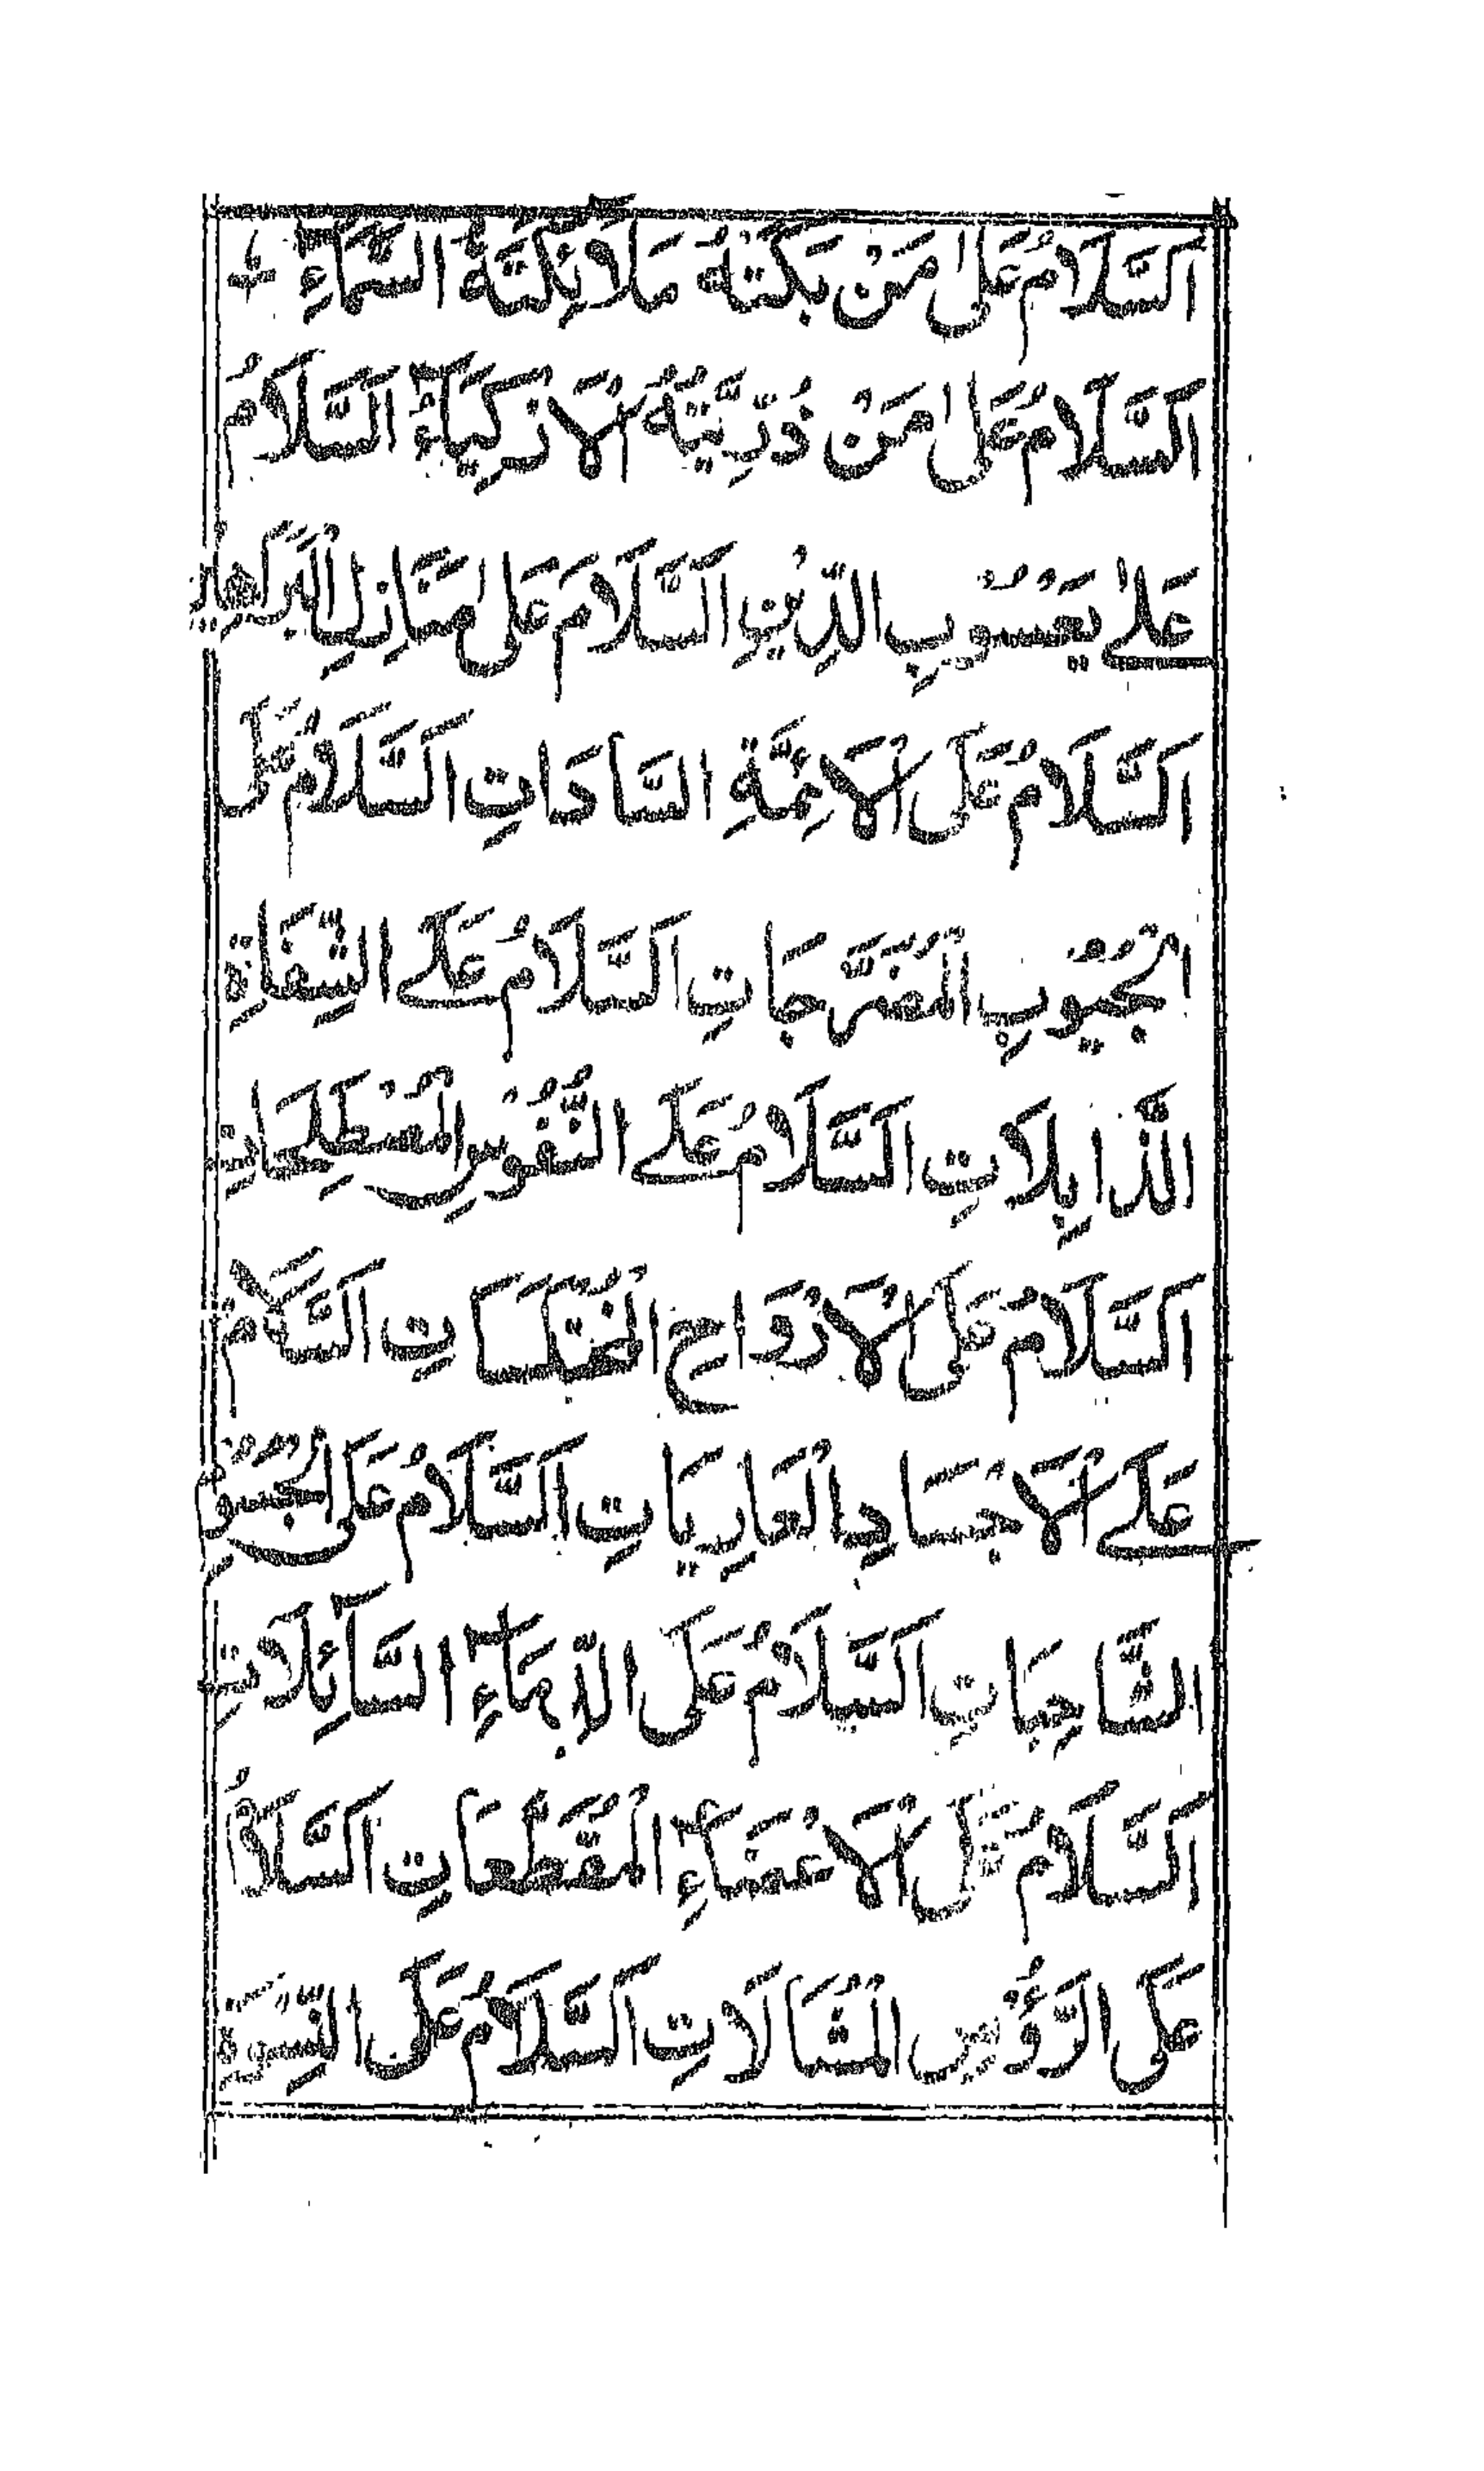 اَلسَّلَامُ عَلٰى مَنْ بَكَتْهُ مَلَائِكَةُ السَّمَاءِ
اَلسَّلَامُ عَلٰى مَنْ ذُرِّيَّتُهُ الْاَزْكِيَاءُ اَلسَّلَامُ
عَلٰے يَعْسُوْبِ الدِّيْنِ اَلسَّلَامُ عَلٰى مَنَازِلِ الْبَرَاهِيْنِ
اَلسَّلَامُ عَلَى الْاَئِمَّةِ السَّادَاتِ اَلسَّلَامُ عَلَى
الْجُيُوْبِ الْمُضَرَّجَاتِ اَلسَّلَامُ عَلَے الشِّفَاةِ
الذَّابِلَاتِ اَلسَّلَامُ عَلَے النُّفُوْسِ الْمُصْطَلِحَاتِ
اَلسَّلَامُ عَلَى الْاَرْوَاحِ الْمُخْتَلَسَاتِ اَلسَّلَامُ
عَلَے الْاَجْسَادِ الْعَارِيَاتِ اَلسَّلَامُ عَلَى الْجُسُوْمِ
الشَّاحِبَاتِ اَلسَّلَامُ عَلَى الدِّمَاءِ السَّائِلَاتِ
اَلسَّلَامُ عَلَى الْاَعْضَاءِ الْمُقَطَّعَاتِ اَلسَّلَامُ
عَلَى الرُّؤُسِ الْمُشَالَاتِ اَلسَّلَامُ عَلَى النِّسْوَةِ